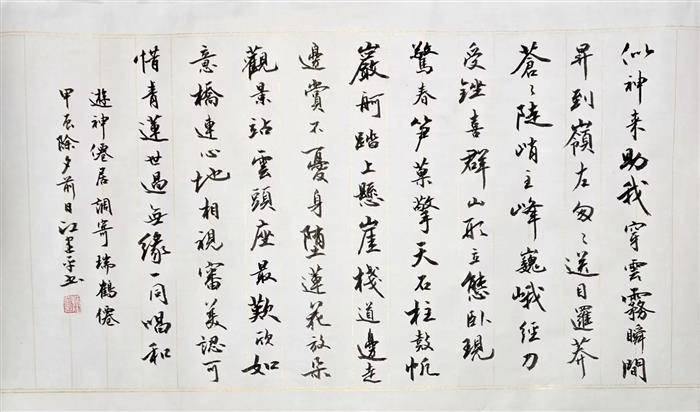 似神来助我穿雲霧瞬間
昇到嶺左匆々送目羅莽
蒼々陡峭主峰巍峨經刀
受銼喜群山形立態卧現
驚春笋菓擎天石柱鼓帆
巖舸踏上懸崖棧道邊走
邊賞不憂身墮蓮花放朵
觀景站雲頭座最歎欣如
意橋連心地相視審美認可
惜青蓮世過無緣一同唱和
遊神僊居調寄瑞鶴僊
甲辰除夕前日江平書